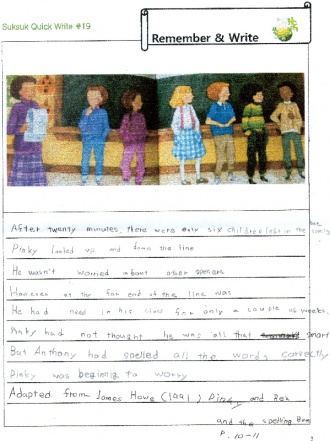 Suksuk Quick Write #19
Remember & Write
After twenty minutes, there were only six children left in the
bee
Pinky looked up and down the line
He wasn't worried about other spellers
However at the far end of the line was
He had in his class for only a couple of weeks.
Pinky had not thought he was all that smart
But Anthony had spelled all the words correctly
Pinky was beginning to worry
Adapted from James Howe (1991) Pinky and Rex
and the spelling Bee
P. 10-11